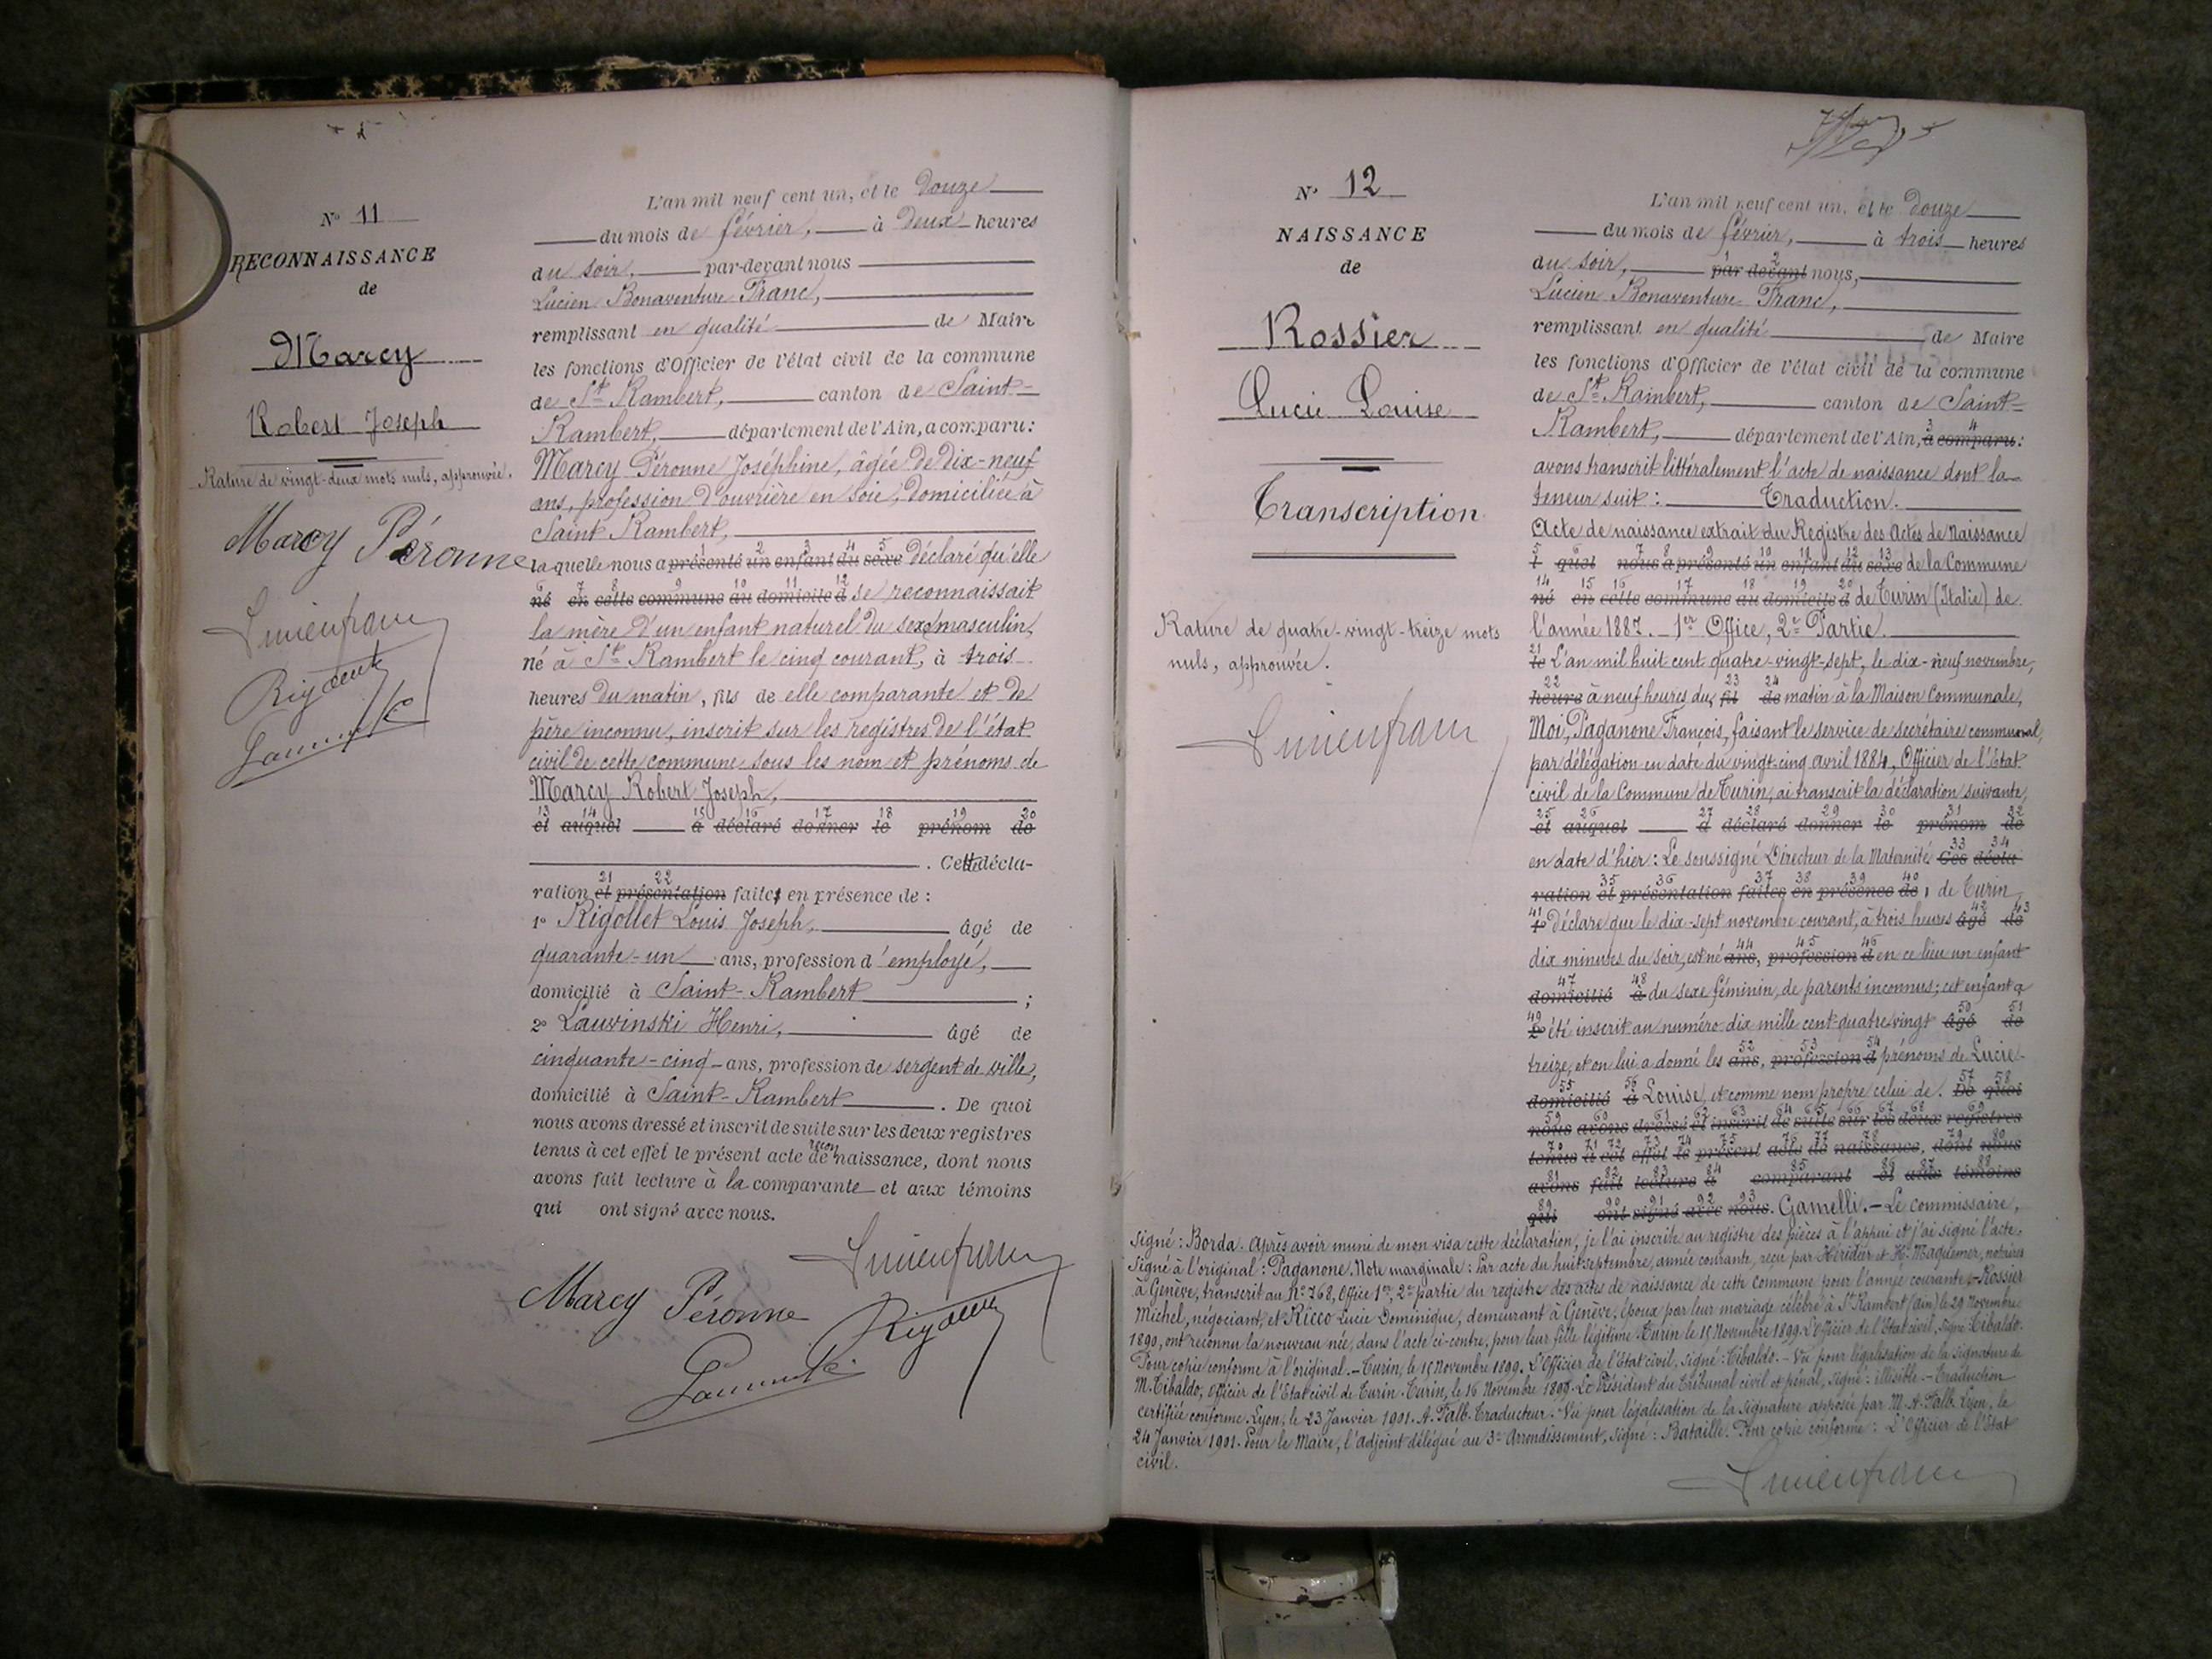 N° 11
RECONNAISSANCE
de
Marcy
Robert Joseph
Rature de vingt-deux mots nuls, approuvée.
Marcy Péronne
L'an mil neuf cent un, et le douze
du mois de février, à deux heures
du soir, par-devant nous
Lucien Bonaventure Franc,
remplissant en qualité de Maire
les fonctions d'Officier de l'état civil de la commune
de St Rambert, canton de Saint-
Rambert, département de l'Ain, a comparu:
Marcy Péronne Joséphine, âgée de dix-neuf
ans, profession d'ouvrière en soie, domiciliée à
Saint Rambert,
1 2 3 4 5
laquelle nous a présenté un enfant du sexe déclaré qu'elle
6 7 8 9 10 11 12
né en cette commune au domicile d se reconnaissait
la mère d'un enfant naturel du sexe masculin,
né à St Rambert le cinq courant, à trois
heures du matin, fils de elle comparante et de
père inconnu, inscrit sur les registres de l'état
civil de cette commune sous les nom et prénoms de
Marcy Robert Joseph,
13 14 15 16 17 18 19 20
et auquel a déclaré donner le prénom de
. Cette décla-
21 22
ration et présentation faites en présence de :
1° Rigollet Louis Joseph, âgé de
quarante-un ans, profession d'employé,
domicilié à Saint-Rambert ;
2° Lauwinski Henri, âgé de
cinquante-cinq ans, profession de sergent de ville,
domicilié à Saint-Rambert . De quoi
nous avons dressé et inscrit de suite sur les deux registres
tenus à cet effet le présent acte de naissance, dont nous
avons fait lecture à la comparante et aux témoins
qui ont signé avec nous.
Marcy Péronne
N° 12
NAISSANCE
de
Rossier
Lucie Louise
Transcription
Rature de quatre-vingt-treize mots
nuls, approuvée.
L'an mil neuf cent un, et le douze
du mois de février, à trois heures
1 2
du soir, par devant nous,
Lucien Bonaventure Franc,
remplissant en qualité de Maire
les fonctions d'Officier de l'état civil de la commune
de St Rambert, canton de Saint-
3 4
Rambert, département de l'Ain, a comparu:
avons transcrit littéralement l'acte de naissance dont la
teneur suit : Traduction.
Acte de naissance extrait du Registre des Actes de Naissance
5 6 7 8 9 10 11 12 13
l quel nous a présenté un enfant du sexe de la Commune
14 15 16 17 18 19 20
né en cette commune au domicile d de Turin (Italie) de
l'année 1887. – 1er Office, 2e Partie.
21
le L'an mil huit cent quatre-vingt-sept, le dix-neuf novembre,
22 23 24
heure à neuf heures du fil de matin à la Maison Communale,
Moi, Paganone François, faisant le service de secrétaire communal,
par délégation en date du vingt-cinq avril 1884, Officier de l'Etat
civil de la Commune de Turin, ai transcrit la déclaration suivante,
25 26 27 28 29 30 31 32
et auquel a déclaré donner le prénom de
33 34
en date d'hier : Le soussigné Directeur de la Maternité Ces décla-
35 36 37 38 39 40
ration et présentation faites en présence de : de Turin
41 42 43
1° Déclare que le dix-sept novembre courant, à trois heures âgé de
44 45 46
dix minutes du soir, est né ans, profession d en ce lieu un enfant
47 48
domicilié à du sexe féminin, de parents inconnus; cet enfant a
49 50 51
2° été inscrit au numéro dix mille cent quatre vingt âgé de
52 53 54
treize, et on lui a donné les ans, profession d prénoms de Lucie-
55 56 57 58
domicilié à Louise, et comme nom propre celui de . De quoi
59 60 61 62 63 64 65 66 67 68 69
nous avons dressé et inscrit de suite sur les deux registres
70 71 72 73 74 75 76 77 78 79 80
tenus à cet effet le présent acte de naissance, dont nous
81 82 83 84 85 86 87 88
avons fait lecture à comparant et aux témoins
89 90 91 92 93
qui ont signé avec nous. Gamelli. – Le commissaire,
signé : Borda. Après avoir muni de mon visa cette déclaration, je l'ai inscrite au registre des pièces à l'appui et j'ai signé l'acte.
Signé à l'original : Paganone. Note marginale : Par acte du huit septembre, année courante, reçu par notaires
à Genève, transcrit au N° 768, Office 1er, 2e partie du registre des actes de naissance de cette commune pour l'année courante, Rossier
Michel, négociant, et Ricco Lucie Dominique, demeurant à Genève, époux par leur mariage célébré à St Rambert (Ain) le 29 Novembre
1890, ont reconnu la nouveau née, dans l'acte ci-contre, pour leur fille légitime. Turin le 15 Novembre 1899. L'Officier de l'Etat civil, signé : Tibaldo.
Pour copie conforme à l'original. – Turin, le 15 Novembre 1899. L'Officier de l'Etat civil, signé : Tibaldo. – Vu pour légalisation de la signature de
M. Tibaldo, officier de l'Etat civil de Turin. Turin, le 16 Novembre 1899. Le Président du Tribunal civil et pénal, signé : illisible. – Traduction
certifiée conforme. Lyon, le 23 Janvier 1901. A. Falb. Traducteur. Vu pour légalisation de la signature apposée par M. A. Falb. Lyon, le
24 Janvier 1901. Pour le Maire, l'adjoint délégué au 3e Arrondissement, signé : Bataille. Pour copie conforme : L'Officier de l'Etat
civil.